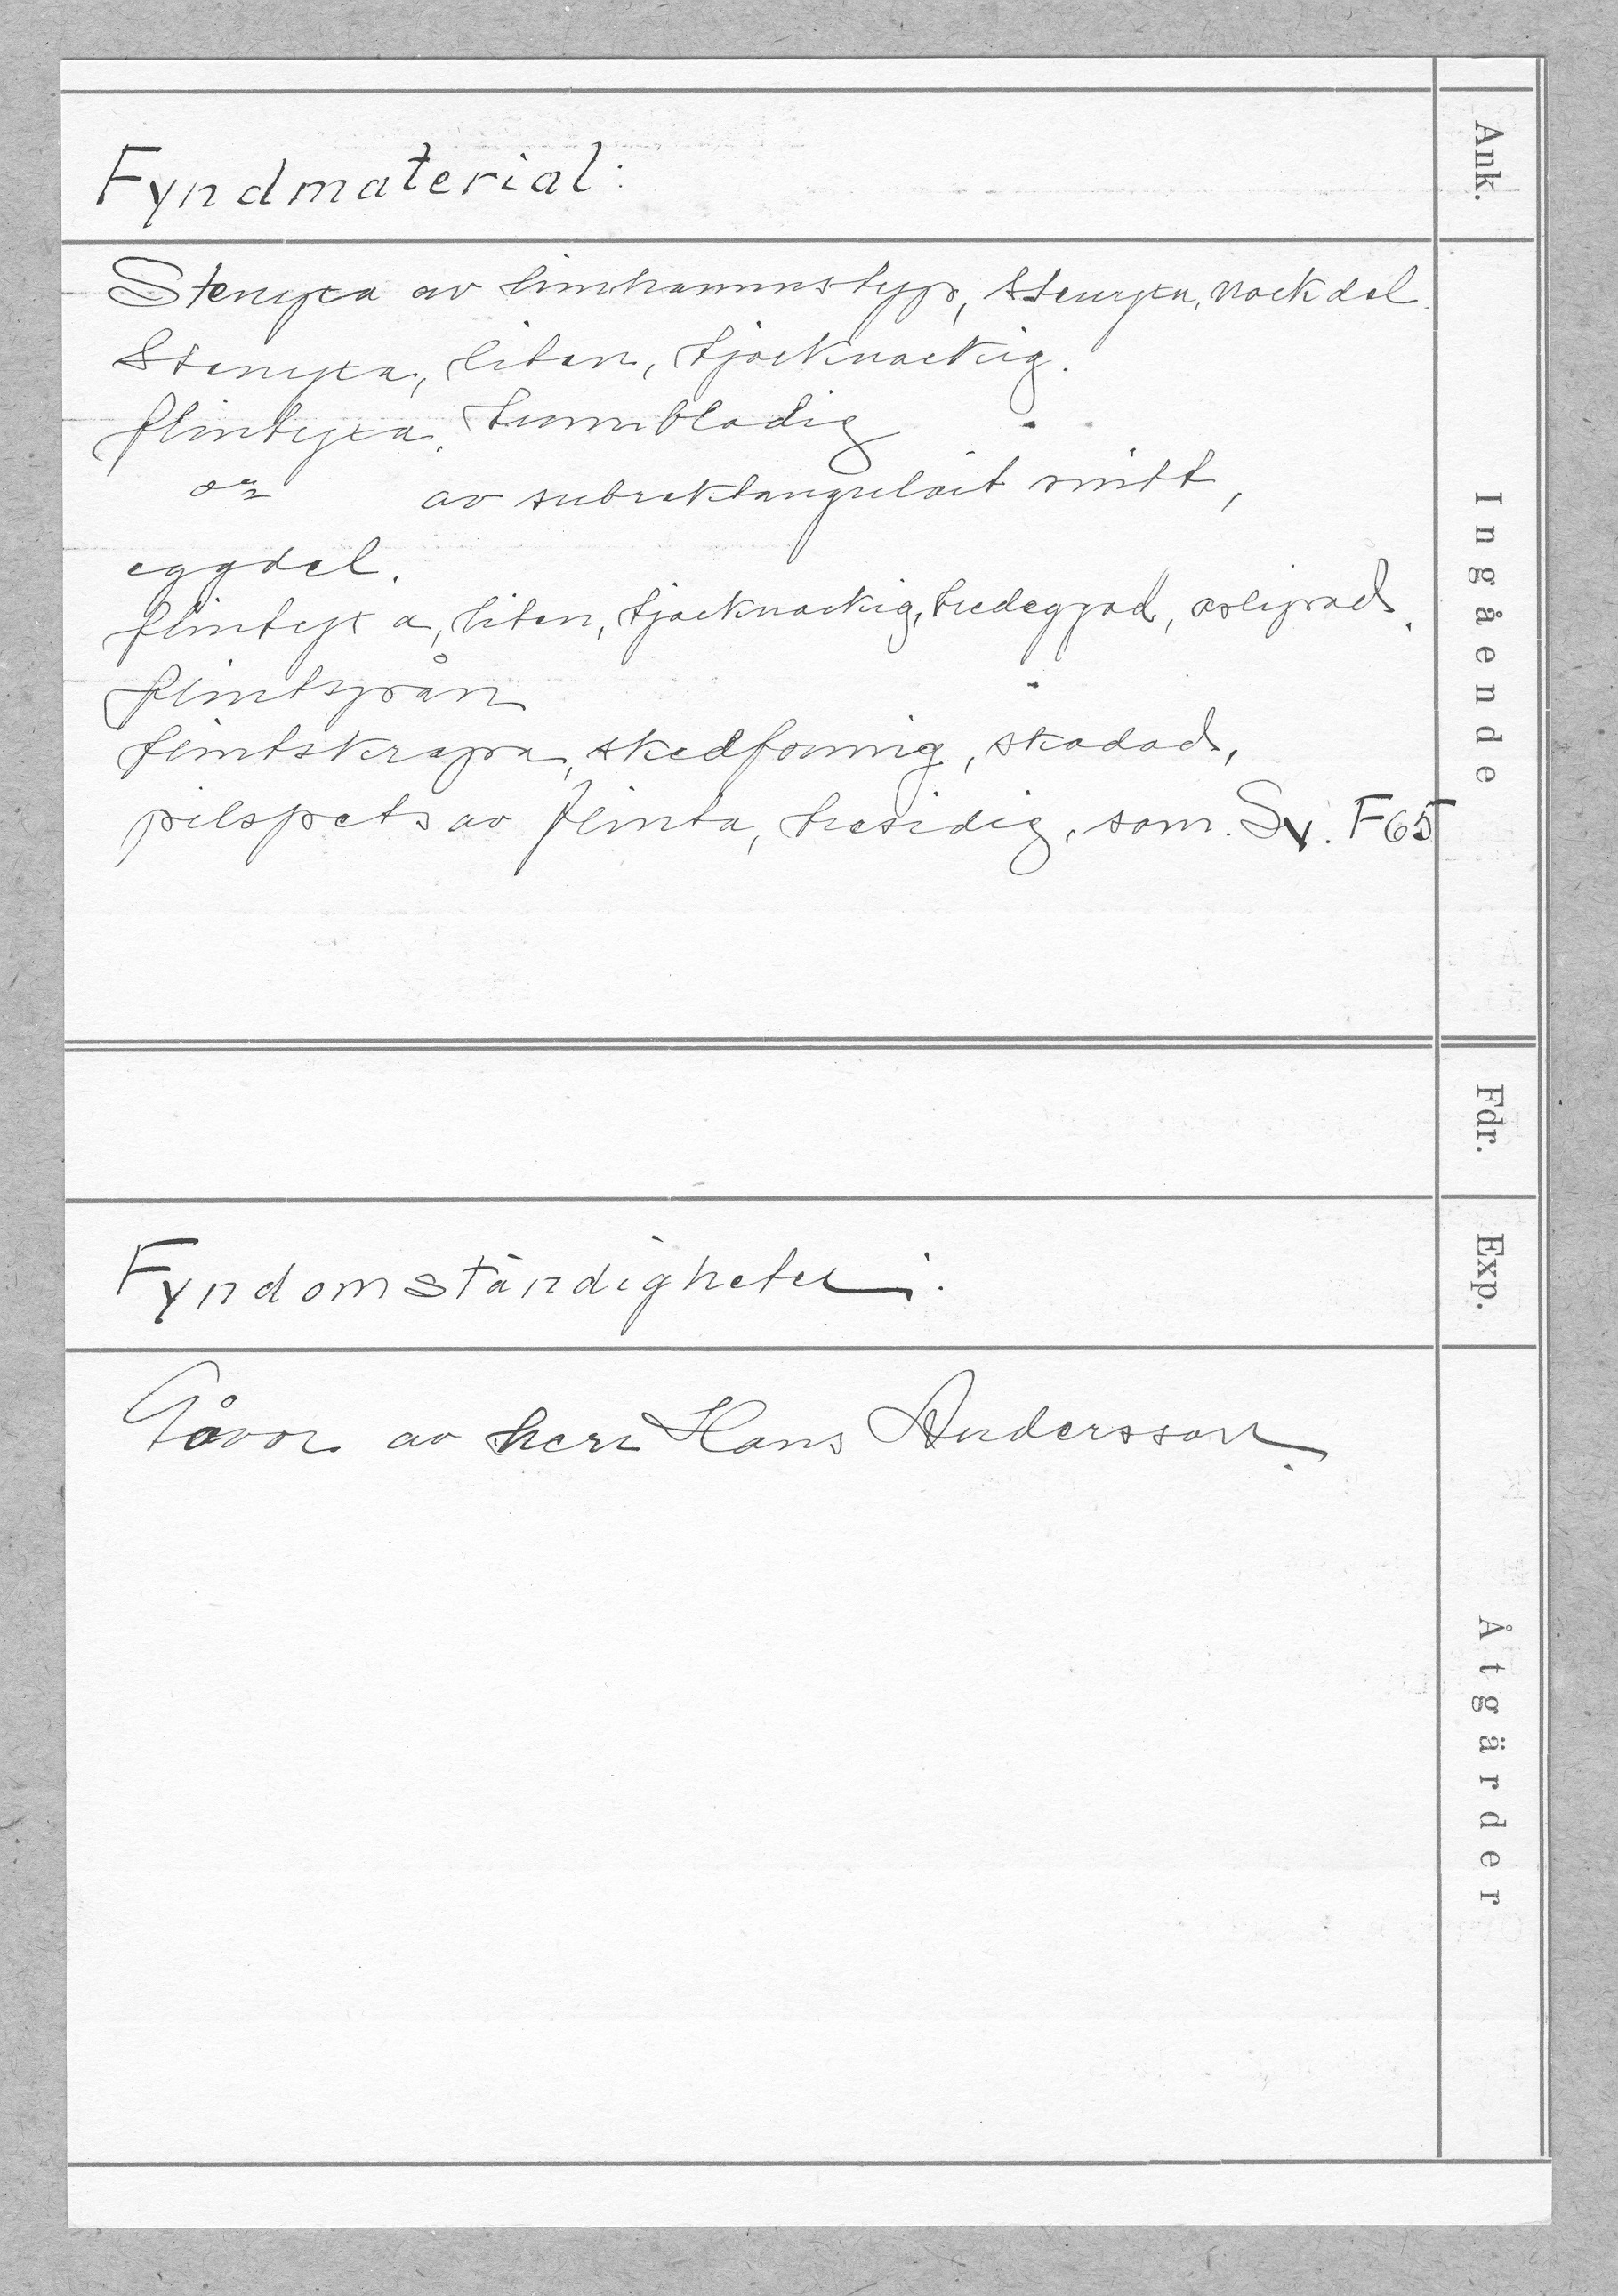 Fyndmaterial:
Stenyxa av limhamnstyp, stenyxa, nackdel.
Stenyxa, liten, tjocknackig.
flintyxa, tunnbladig
av subrektangulärt snitt,
eggdel.
flintyxa, liten, tjocknackig, bredeggad, oslipad.
flintspån
flintskrapa, skedformig, skadad,
pilspets av flinta, tresidig, som. Sv. F65
Fyndomständigheter:
Gåvor av herr Hans Andersson.
Ank.
Ingående
Fdr.
Exp.
Åtgärder